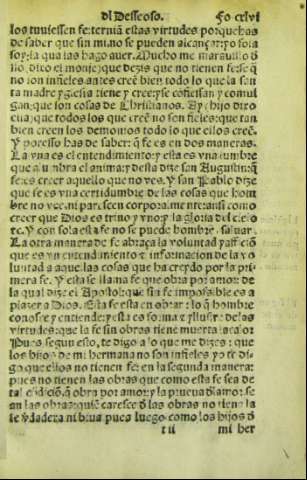 dl Desseoso. Fo cxlvi
los tuuiessen fe: terniã estas virtudes porque has
de saber que sin mi no se pueden alcançar: yo sola
soy la que las hago auer. Mucho me marauillo d̃
no. Dixo el monje que dezis que no tienen fe: se q̃
no son infieles antes creẽ bien todo lo que la san
ta madre yglesia tiene y cree: y se cõfiessan y comul
gan: que son cosas de Christianos. Ay hijo dixo
ella: que todos los que creẽ no son fieles: que tan
bien creen los demonios todo lo que ellos creẽ.
Y por esso has de saber: q̃ fe es en dos maneras.
La vna es el entendimiento: y esta es vna lumbre
que alumbra el anima: y desta dize san Augustin: q̃
fe: es creer aquello que no ves. Y san Pablo dize
que fe es vna certidumbre de las cosas que hom
bre no vee. ni parescen corporalmente: ansi como
creer que Dios es trino y vno: y la gloria del cielo
etc. Y con sola esta fe no se puede hombre. saluar.
La otra manera de fe abraça la voluntad y afficiõ
que es vn entendimiento e informacion de la vo
luntad a aquellas cosas que ha creydo por la pri
mera fe. Y esta se llama fe que obra por amor: de
la qual dize el Apostol: que sin fe impossible es a
plazer a Dios. Esta fe esta en obrar: lo q̃ hombre
conosce y entiende: y esta es forma y lustre de las
virtudes: que la fe sin obras tiene muerta la color
Pues segun esto, te digo a lo que me dizes: que
los hijos de mi hermana no son infieles yo te di
go que ellos no tienen fe: en la segunda manera:
pues no tienen las obras que como esta fe sea de
tal cõdiciõ. q̃ obra por amor: y la prueua d̃l amor: se
an las obras: quiẽ caresce d̃ las obras no tiene la
fe v̓dadera ni biua pues luego como los hijos d̃
t ii mi her